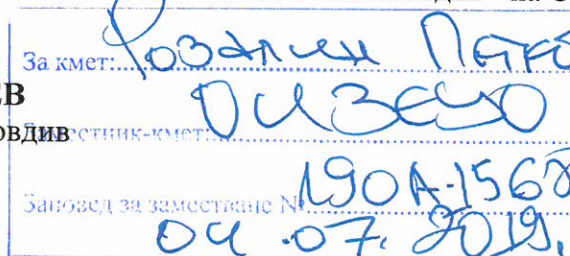 За кмет: Розалин Петков
ЕВ
овдив
Заместник-кмет:
Заповед за заместване № 19ОА-1567
04.07.2019.